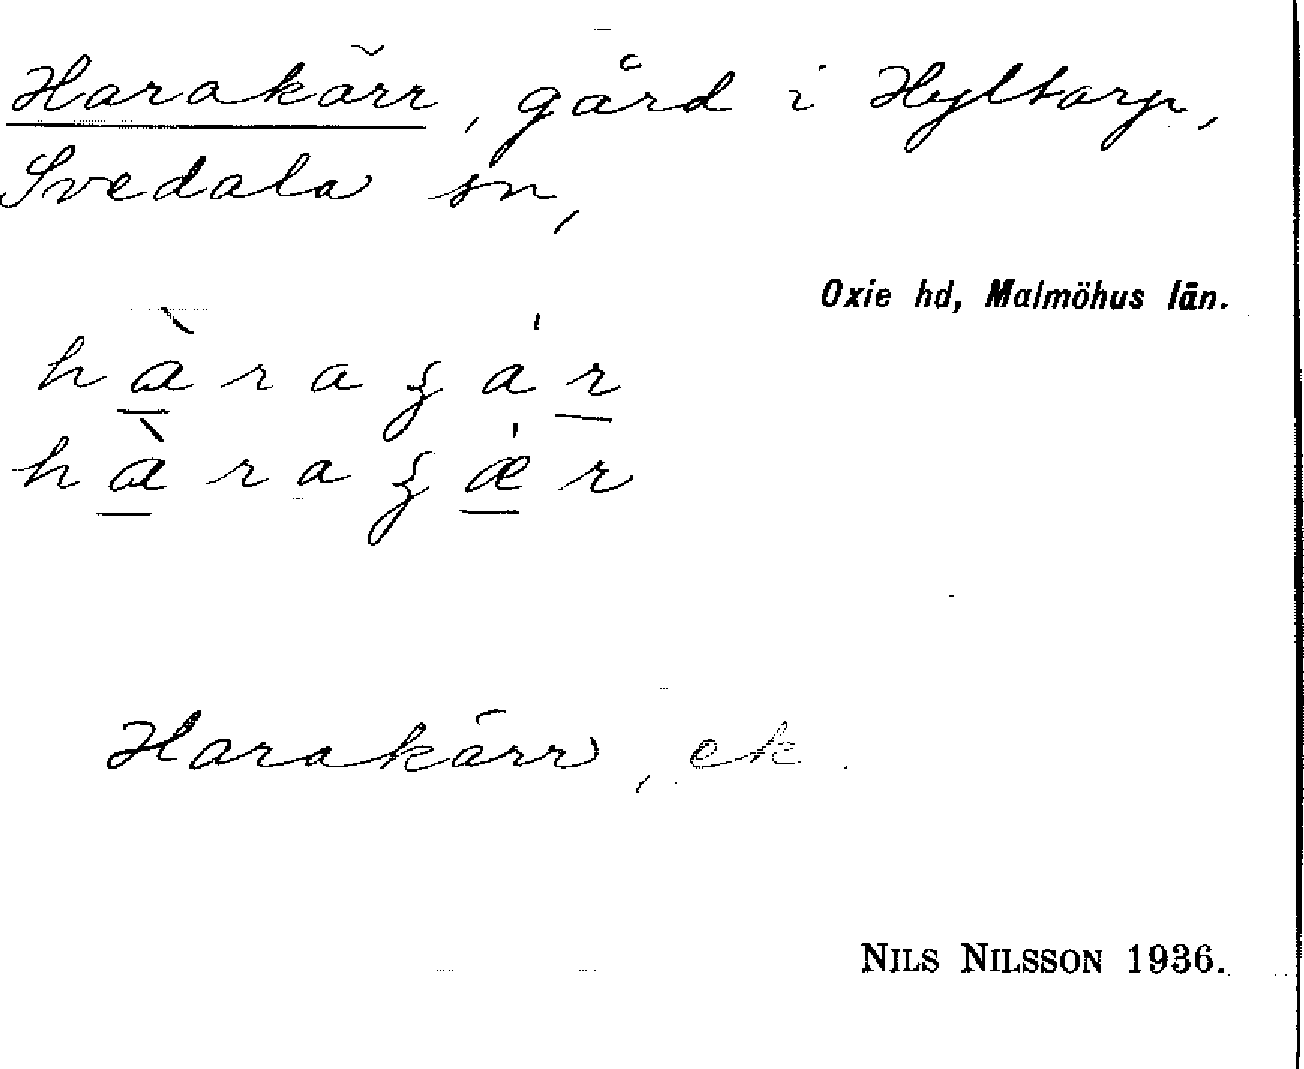 Harakärr, gård i Hyltarp,
Svedala sn,
Oxie hd, Malmöhus län.
hàraʒár
hàraʒǽr
Harakärr, ek.
NILS NILSSON 1936.